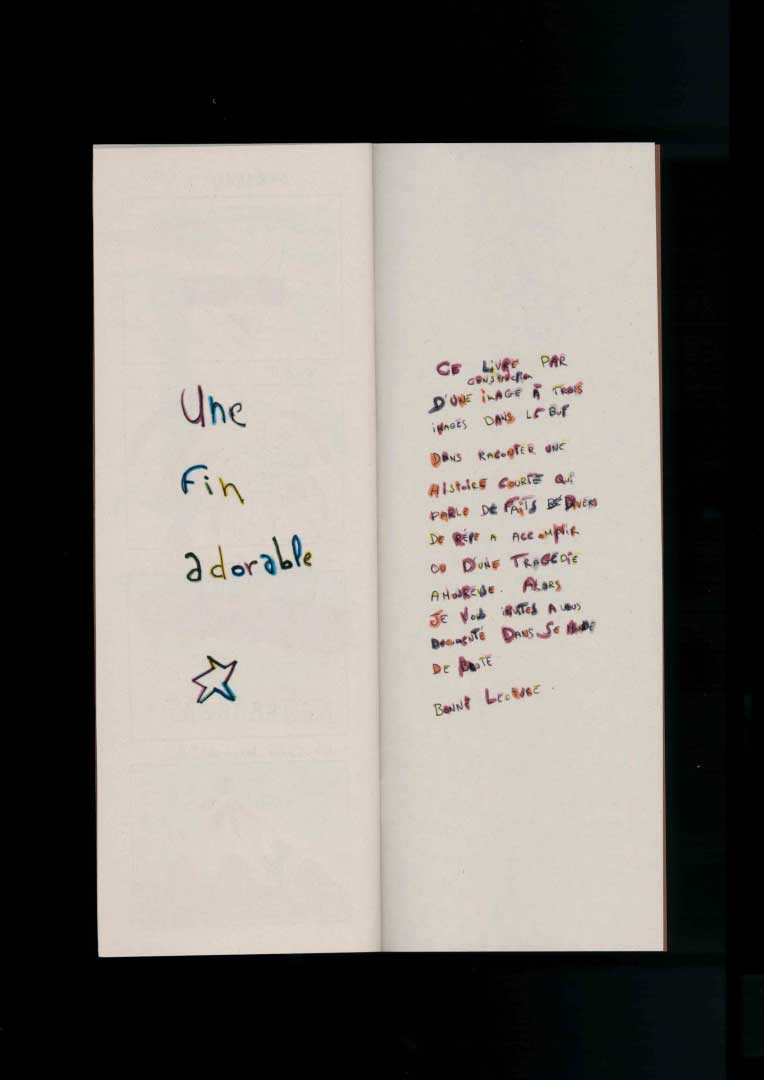 Une
Fin
adorable
CE LIVRE PAR
CONSTRUCTION
D'UNE IMAGE À TROIS
IMAGES DANS LE BUF
DANS RACONTER UNE
HISTOIRE COURTE QUI
PARLE DE FAITS DIVERS
DE RÊPE A ACCOMPLIR
OU D'UNE TRAGÉDIE
AMOUREUSE. ALORS
JE VOUS A VOUS
DANS SE
DE
BONNE LECTURE.